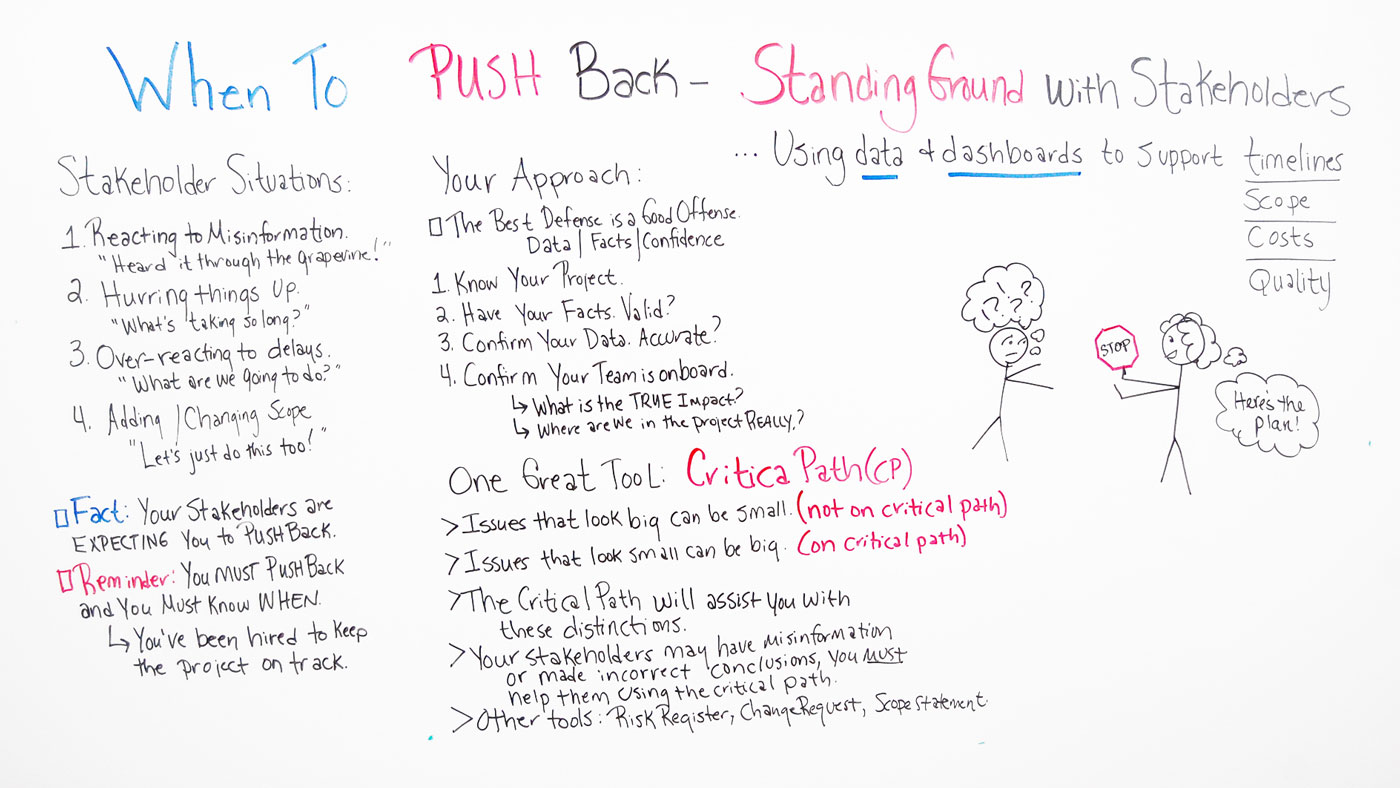 When To PUSH Back - Standing Ground with Stakeholders
... Using data & dashboards to support timelines
Scope
Costs
Quality
Stakeholder Situations:
1. Reacting to Misinformation.
"Heard it through the grapevine!"
2. Hurring things Up.
"What's taking so long?"
3. Over-reacting to delays.
"What are we going to do?"
4. Adding / Changing Scope
"Let's just do this too!"
Fact: Your Stakeholders are
EXPECTING You to PUSH Back.
Reminder: You MUST PUSH Back
and You Must Know WHEN.
↳ You've been hired to keep
the project on track.
Your Approach:
The Best Defense is a Good Offense.
Data | Facts | Confidence
1. Know Your Project.
2. Have Your Facts. Valid?
3. Confirm Your Data. Accurate?
4. Confirm Your Team is onboard.
↳ What is the TRUE Impact?
↳ Where are we in the project REALLY?
One Great Tool: Critica Path (CP)
> Issues that look big can be small. (not on critical path)
> Issues that look small can be big. (on critical path)
> The Critical Path will assist you with
these distinctions.
> Your stakeholders may have misinformation
or made incorrect conclusions, you must
help them using the critical path.
> Other tools: Risk Register, Change Request, Scope Statement.
? ! ? ?
STOP
Here's the
plan!